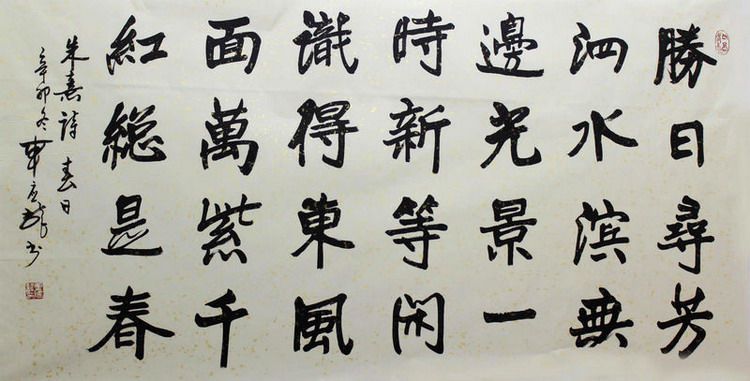 勝日尋芳
泗水滨無
邊光景一
時新等闲
識得東風
面萬紫千
紅総是春
朱熹詩 春日
辛卯冬